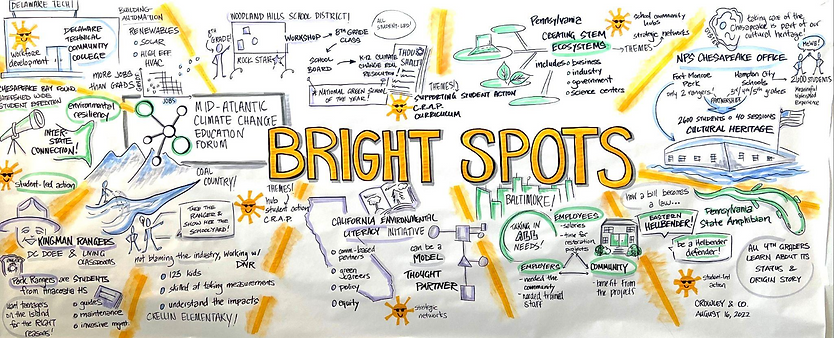 DELAWARE TECH!
DELAWARE
TECHNICAL
COMMUNITY
COLLEGE
workforce
development
BUILDING
AUTOMATION
RENEWABLES
SOLAR
HIGH EFF
HVAC
MORE JOBS
THAN GRADS
JOBS
WOODLAND HILLS SCHOOL DISTRICT!
8TH GRADE!
ROCK STAR
WORKSHOP
8TH GRADE
CLASS
ALL
STUDENT-LED!
SCHOOL
BOARD
K-12 CLIMATE
CHANGE EDU.
RESOLUTION!
NATIONAL GREEN SCHOOL
OF THE YEAR!
THEMES!
SUPPORTING STUDENT ACTION
C.R.A.P.
CURRICULUM
Pennsylvania
CREATING STEM
ECOSYSTEMS
includes
business
industry
government
science centers
THEMES
school community
hubs
strategic networks
taking care of the
Chesapeake is part of our
cultural heritage!
NPS CHESAPEAKE OFFICE
Fort Monroe
Park
only 2 rangers!
Hampton City
Schools
3rd/4th/5th grades
PARTNERSHIP
2600 STUDENTS
40 SESSIONS
CULTURAL HERITAGE
WOW!
2600
STUDENTS
Meaningful
Watershed
Experience
CHESAPEAKE BAY FOUND.
STUDENT EXPEDITION
environmental
resiliency
INTER-
STATE
CONNECTION!
student-led action
MID-ATLANTIC
CLIMATE CHANGE
EDUCATION
FORUM
BRIGHT SPOTS
COAL
COUNTRY!
THEMES!
hub
student action
C.R.A.P.
TAKE THE
RANGERS &
SHOW HER THE
SCHOOLYARD!
KINGMAN RANGERS
DC DOEE & LIVING
CLASSROOMS
Park Rangers are STUDENTS
from Anacostia HS
want teenagers
on the island
for the RIGHT
reasons!
guides
maintenance
invasive mgmt.
not blaming the industry, working w/
DNR
125 kids
skilled at taking measurements
understand the impacts
CRELLIN ELEMENTARY!
CALIFORNIA ENVIRONMENTAL
LITERACY INITIATIVE
comm-based
partners
green
careers
policy
equity
can be a
MODEL
THOUGHT
PARTNER
strategic
networks
BALTIMORE!
TAKING IN
NEEDS!
EMPLOYEES
salaries
time for
restoration
projects
EMPLOYERS
needed the
community
needed trained
staff
COMMUNITY
benefit from
the projects
how a bill becomes
a law...
EASTERN
HELLBENDER!
Pennsylvania
State Amphibian
be a Hellbender
defender!
student-led
action
ALL 4TH GRADERS
LEARN ABOUT ITS
STATUS &
ORIGIN STORY
CROWLEY & CO.
AUGUST 16, 2022